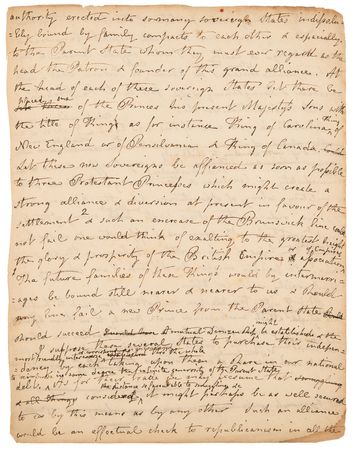 authority erected into so many sovereign States indissolu-
bly bound by family compacts to each other & especially
to the Parent State whom they must ever regard as the
head the Patron & founder of this grand alliance. At
the head of each of these sovereign States let there be
placed one of the Princes his present Majestys Sons with
the title of King as for instance King of Carolina, King of
New England or of Pensilvania & King of Canada.
Let these new Sovereigns be affianced as soon as possible
to three Protestant Princesses which might create a
strong alliance & diversion at present in favour of the
settlement & such an encrease of the Brunswick line could
not fail one would think of exalting to the greatest height
the glory & prosperity of the British Empire & association
The future families of these Kings would by intermarri-
ages be bound still nearer & nearer to us & should
any line fail a new Prince from the Parent State
should succeed A mutual might be established &
I suppose these several States to purchase their indepen-
dancy by each taking upon them a share in our national
debt
considered, it might perhaps be as well secured
to us by this means as by any other Such an alliance
would be an effectual check to republicanism in all the